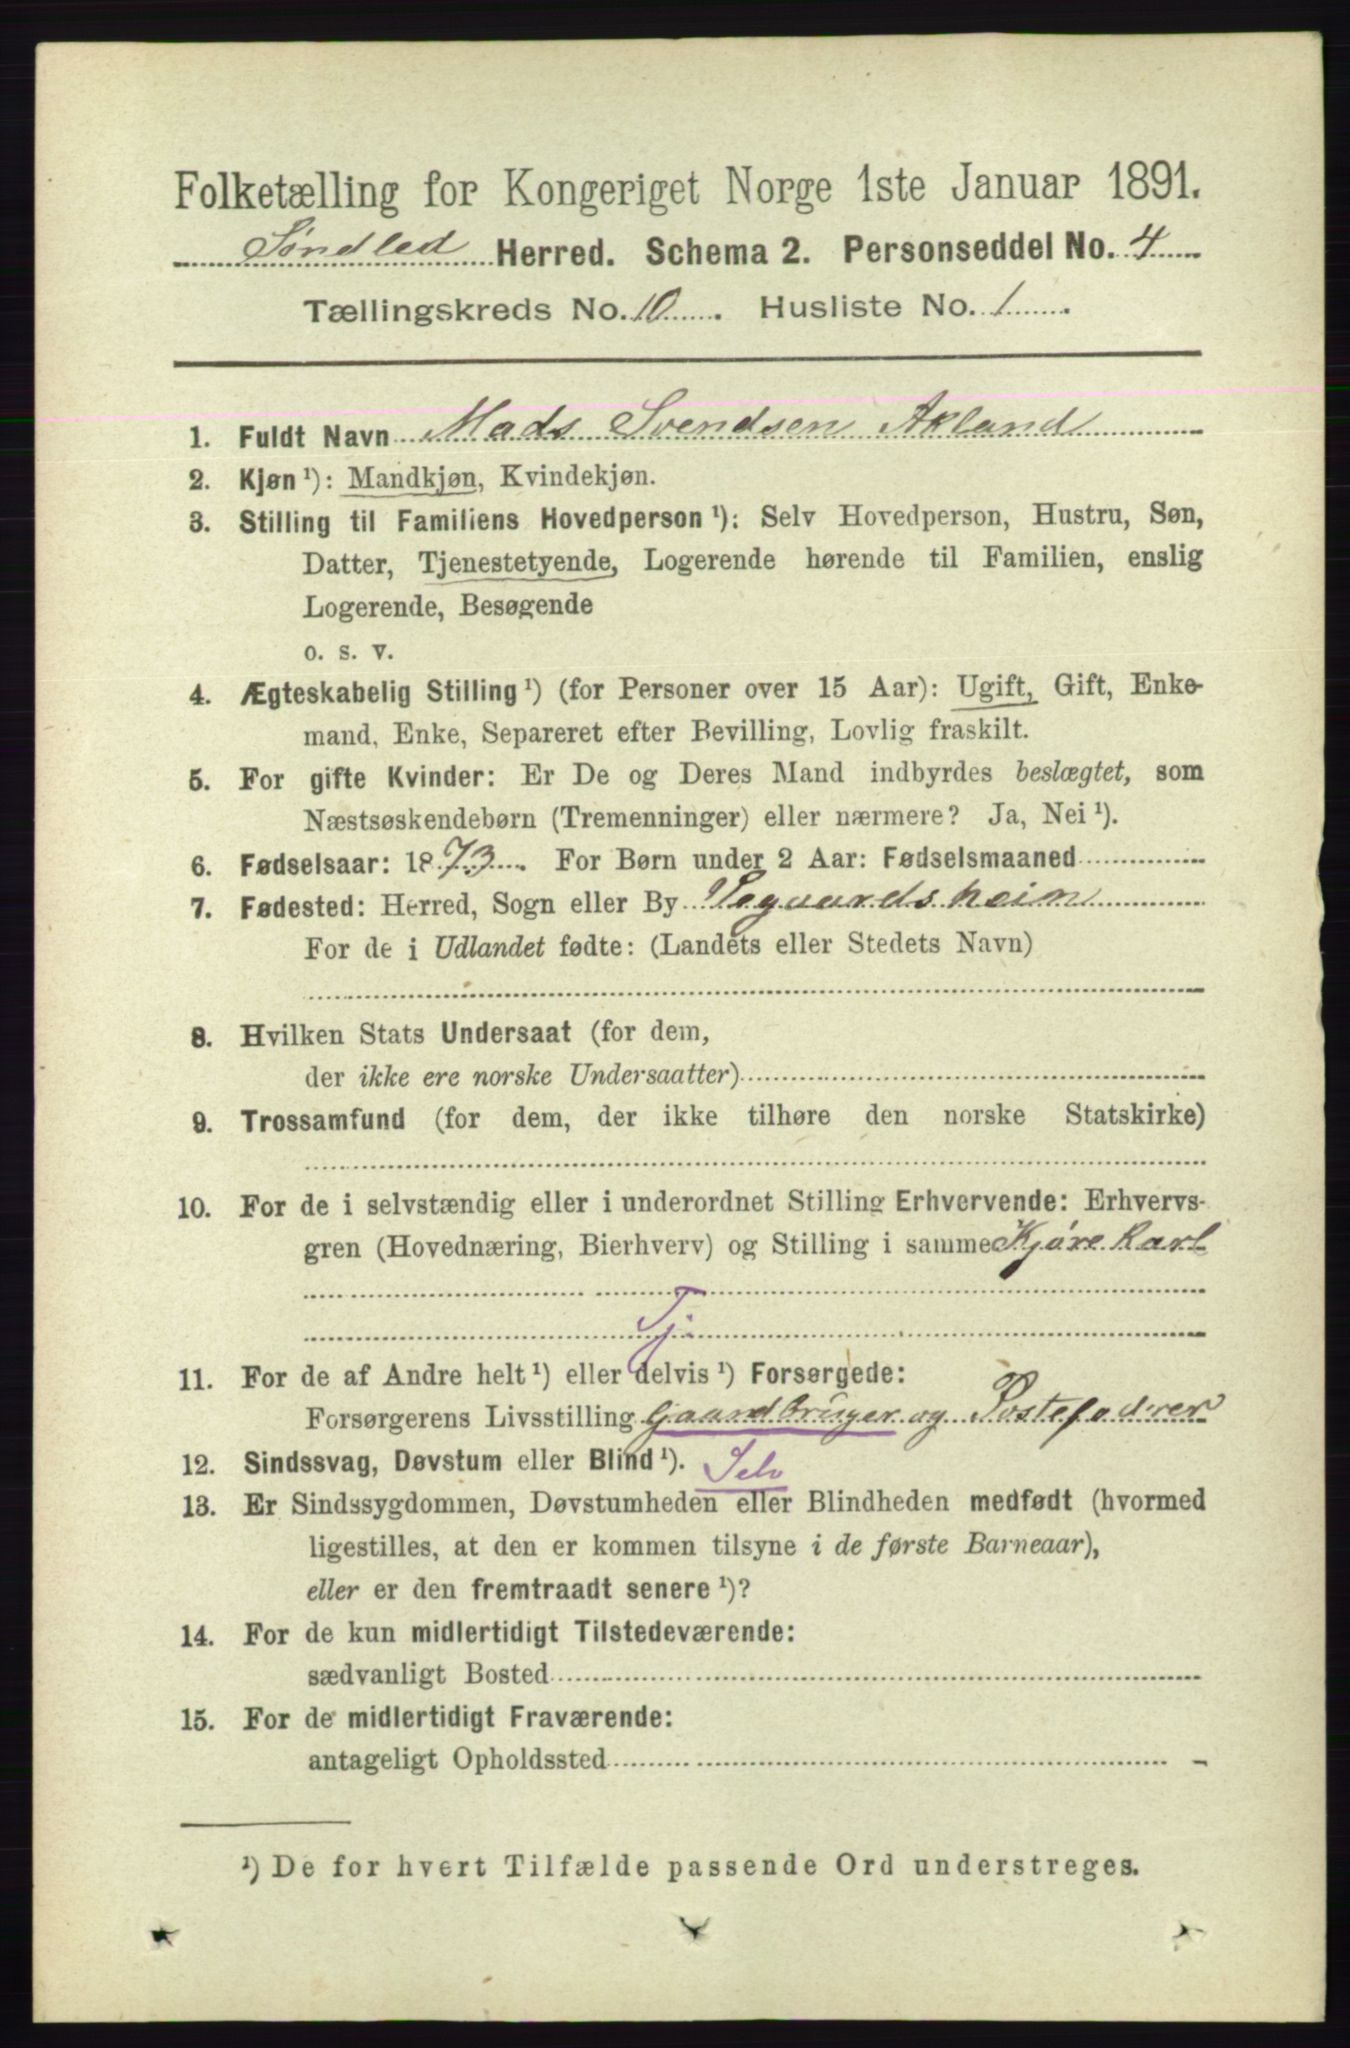 Folketælling for Kongeriget Norge 1ste Januar 1891.
Søndled Herred. Schema 2. Personseddel No. 4
Tællingskreds No. 10. Husliste No. 1.
1. Fuldt Navn Mads Svendsen Akland
2. Kjøn ¹): Mandkjøn, Kvindekjøn.
3. Stilling til Familiens Hovedperson ¹): Selv Hovedperson, Hustru, Søn,
Datter, Tjenestetyende, Logerende hørende til Familien, enslig
Logerende, Besøgende
o. s. v.
4. Ægteskabelig Stilling ¹) (for Personer over 15 Aar): Ugift, Gift, Enke-
mand, Enke, Separeret efter Bevilling, Lovlig fraskilt.
5. For gifte Kvinder: Er De og Deres Mand indbyrdes beslægtet, som
Næstsøskendebørn (Tremenninger) eller nærmere? Ja, Nei ¹).
6. Fødselsaar: 1873. For Børn under 2 Aar: Fødselsmaaned
7. Fødested: Herred, Sogn eller By Vegaardsheim
For de i Udlandet fødte: (Landets eller Stedets Navn)
8. Hvilken Stats Undersaat (for dem,
der ikke ere norske Undersaatter)
9. Trossamfund (for dem, der ikke tilhøre den norske Statskirke)
10. For de i selvstændig eller i underordnet Stilling Erhvervende: Erhvervs-
gren (Hovednæring, Bierhverv) og Stilling i samme Kjøre Karl
Tj
11. For de af Andre helt ¹) eller delvis ¹) Forsørgede:
Forsørgerens Livsstilling Gaardbruger og Posteför­er
12. Sindssvag, Døvstum eller Blind ¹). Selv
13. Er Sindssygdommen, Døvstumheden eller Blindheden medfødt (hvormed
ligestilles, at den er kommen tilsyne i de første Barneaar),
eller er den fremtraadt senere ¹)?
14. For de kun midlertidigt Tilstedeværende:
sædvanligt Bosted
15. For de midlertidigt Fraværende:
antageligt Opholdssted
¹) De for hvert Tilfælde passende Ord understreges.